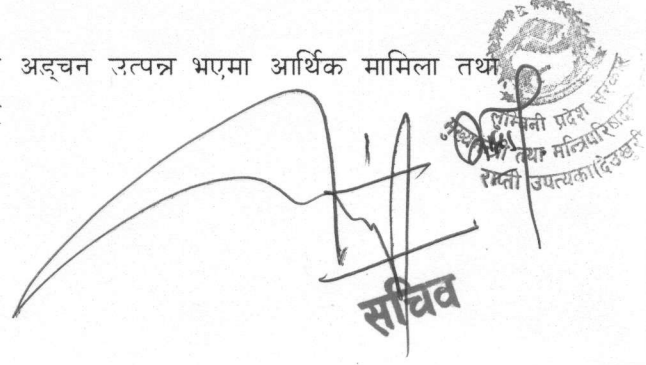 अड्चन उत्पन्न भएमा आर्थिक मामिला तथा
लुम्बिनी प्रदेश सरकार
तथा मन्त्रिपरिषद
राप्ती उपत्यका(देउखुरी
सचिव